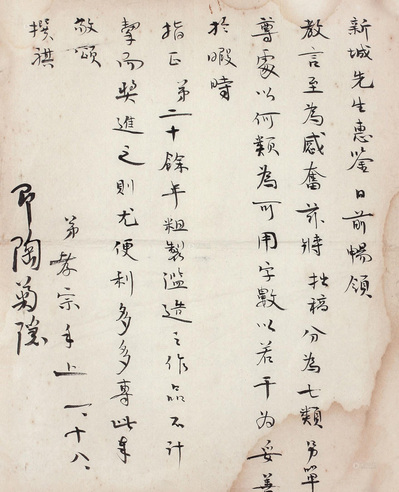 新城先生惠鑒日前暢領
教言至為感奮茲將拙稿分為七類另單
尊處以何類為可用字數以若干為妥善
於暇時
指正弟二十餘年粗製濫造之作品不計
而獎進之則尤便利多多專此
敬頌
撰祺
弟孝宗手上 一、十八、
即陶菊隱